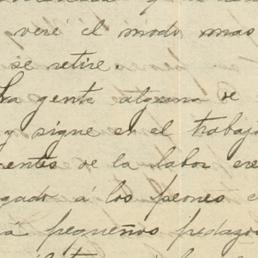 veré el modo mas
se retire.
gente alguna de
y sigue en el trabajo
de la labor
á los peones
á pequeños pedazos